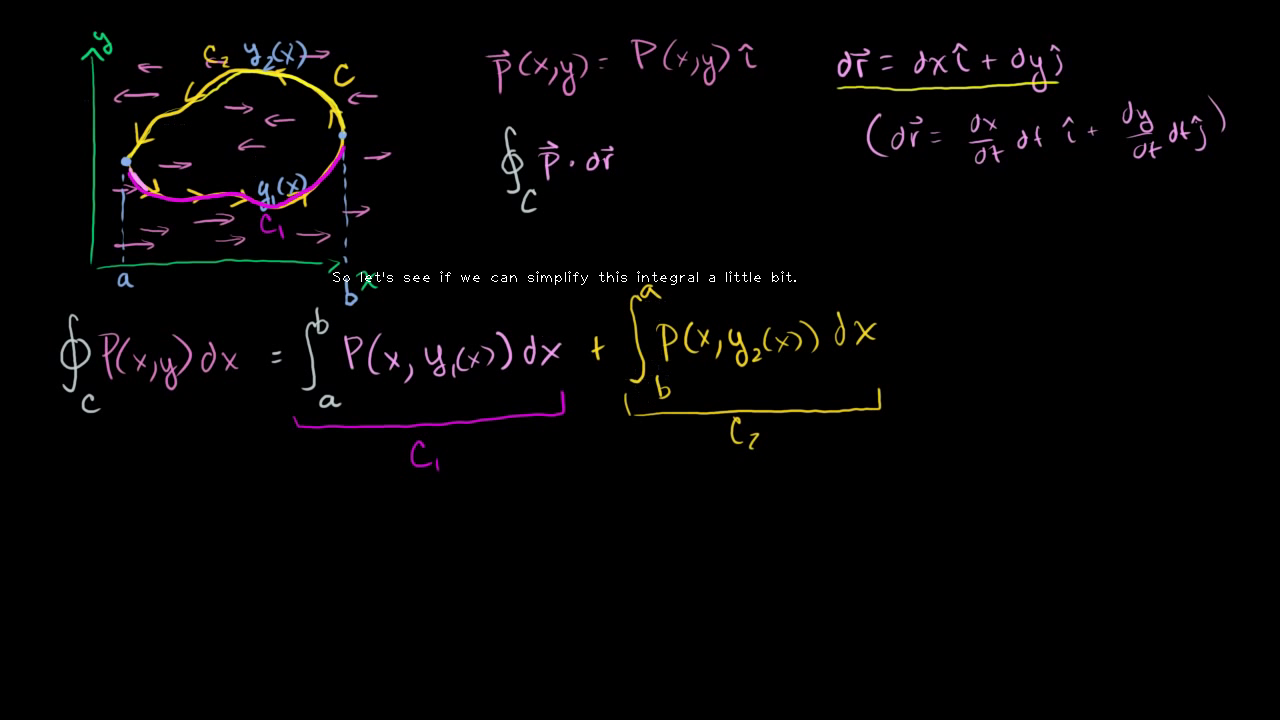 y
C₂ y₂(x) C
y₁(x)
C₁
a b x
p⃗(x,y) = P(x,y) î
∮_C p⃗ · dr⃗
dr⃗ = dx î + dy ĵ
(dr⃗ = dx/dt dt î + dy/dt dt ĵ)
So let's see if we can simplify this integral a little bit.
∮_C P(x,y) dx = ∫_a^b P(x, y₁(x)) dx + ∫_b^a P(x, y₂(x)) dx
C₁ C₂